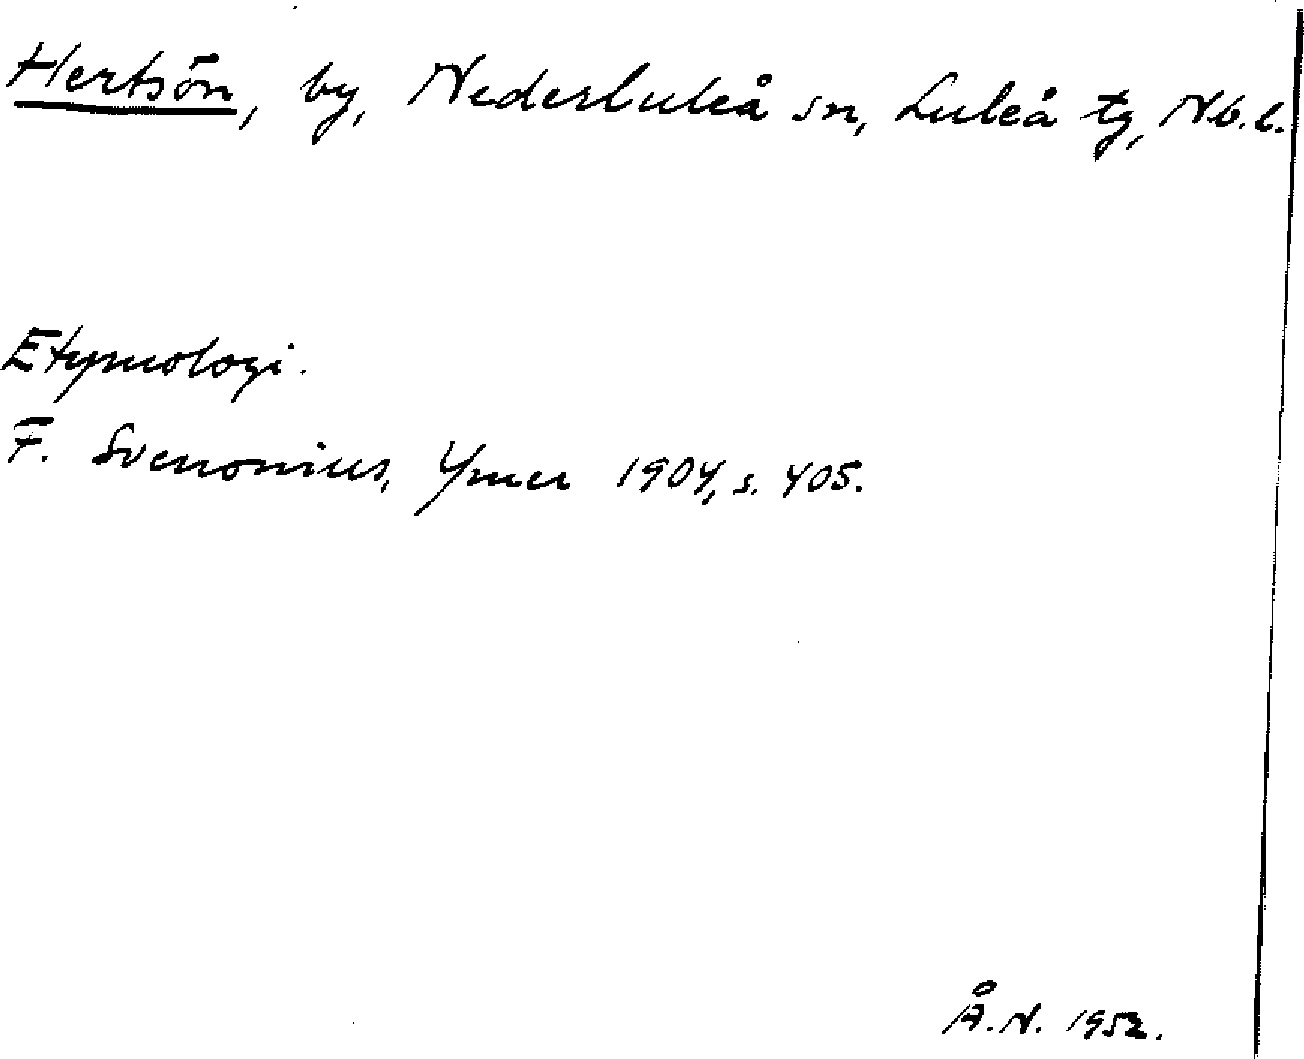 Hertsön, by, Nederluleå sn, Luleå tg, Nb. l.
Etymologi.
F. Svenonius, Ymer 1904, s. 405.
Å.N. 1952.